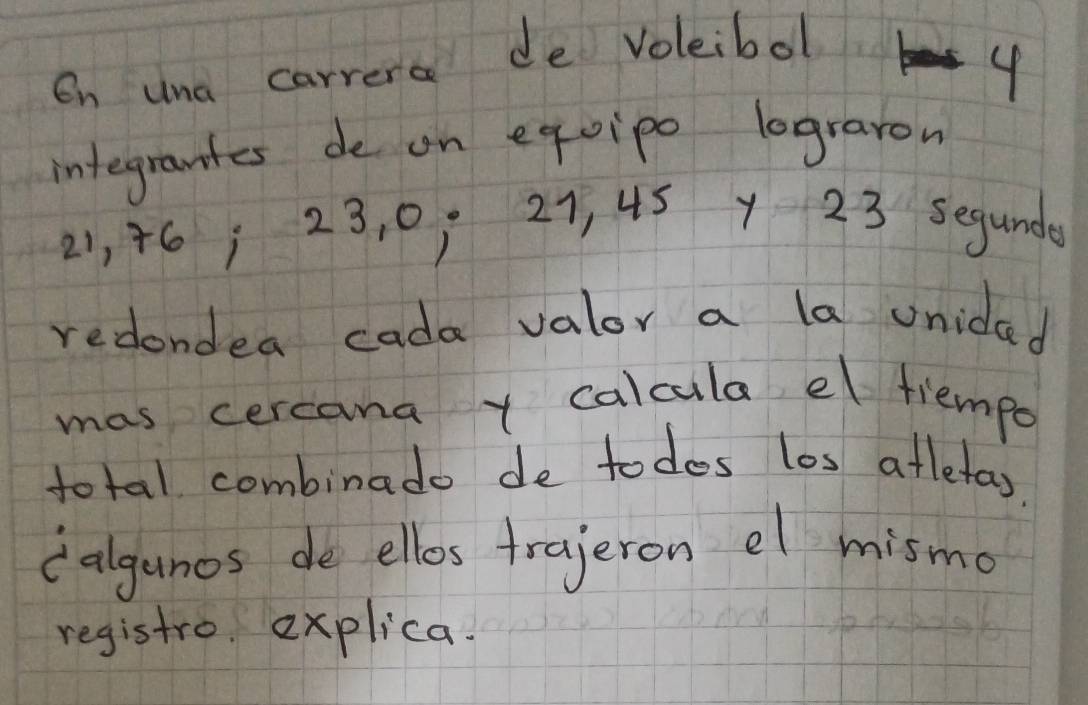 En una carrera de voleibol 4
integrantes de un equipo lograron
21,76 ; 23,0 ; 21,45 y 23 segundo
redondea cada valor a la unidad
mas cercana y calcula el tiempo
total combinado de todos los atletas.
¿algunos de ellos trajeron el mismo
registro. explica.